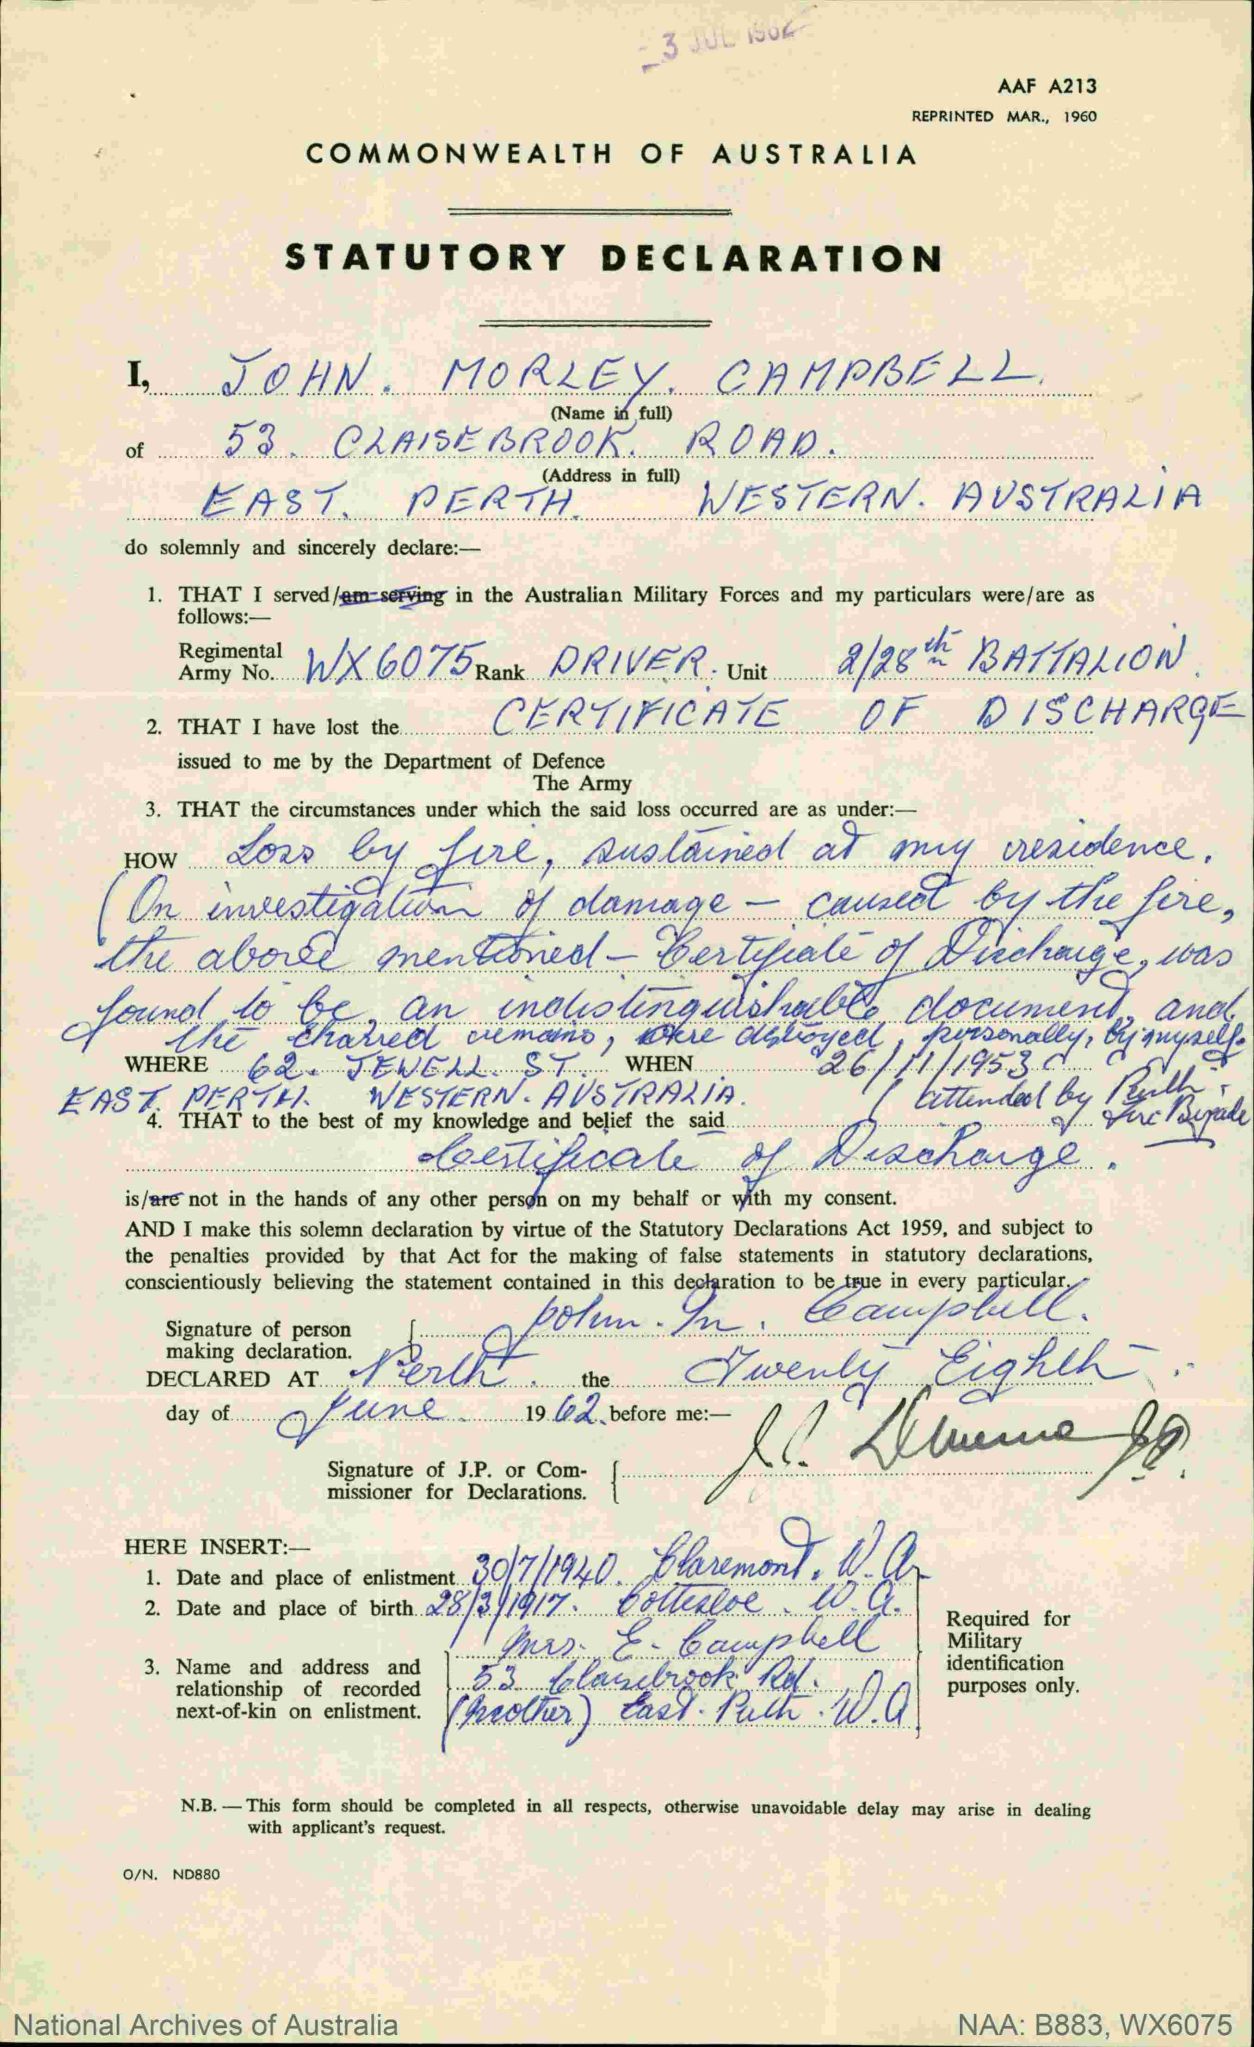 - 3 JUL 1962
AAF A213
REPRINTED MAR., 1960
COMMONWEALTH OF AUSTRALIA
STATUTORY DECLARATION
I, JOHN. MORLEY. CAMPBELL.
(Name in full)
of 53. CLAISEBROOK. ROAD.
(Address in full)
EAST. PERTH. WESTERN. AUSTRALIA
do solemnly and sincerely declare:—
1. THAT I served/am serving in the Australian Military Forces and my particulars were/are as
follows:—
Regimental
Army No. WX6075 Rank DRIVER. Unit 2/28th BATTALION.
2. THAT I have lost the CERTIFICATE OF DISCHARGE
issued to me by the Department of Defence
The Army
3. THAT the circumstances under which the said loss occurred are as under:—
HOW Loss by fire, sustained at my residence.
(On investigation of damage – caused by the fire,
the above mentioned – Certificate of Discharge, was
found to be an indistinguishable document, and
the charred remains, were destroyed, personally, by myself.
WHERE 62. JEWELL. ST. WHEN 26/11/1953
EAST. PERTH. WESTERN. AUSTRALIA. (attended by Perth
Fire Brigade
4. THAT to the best of my knowledge and belief the said
Certificate of Discharge.
is/are not in the hands of any other person on my behalf or with my consent.
AND I make this solemn declaration by virtue of the Statutory Declarations Act 1959, and subject to
the penalties provided by that Act for the making of false statements in statutory declarations,
conscientiously believing the statement contained in this declaration to be true in every particular.
Signature of person
making declaration. John. M. Campbell.
DECLARED AT Perth. the Twenty Eighth.
day of June. 1962. before me:—
Signature of J.P. or Com-
missioner for Declarations. J.P.
HERE INSERT:—
1. Date and place of enlistment 30/7/1940. Claremont. W.A.
2. Date and place of birth 28/3/1917. Cottesloe. W.A.
3. Name and address and
relationship of recorded
next-of-kin on enlistment.
Mrs. E. Campbell
53 Claisebrook Rd.
(Mother) East. Perth. W.A.
Required for
Military
identification
purposes only.
N.B. — This form should be completed in all respects, otherwise unavoidable delay may arise in dealing
with applicant's request.
O/N. ND880
National Archives of Australia
NAA: B883, WX6075